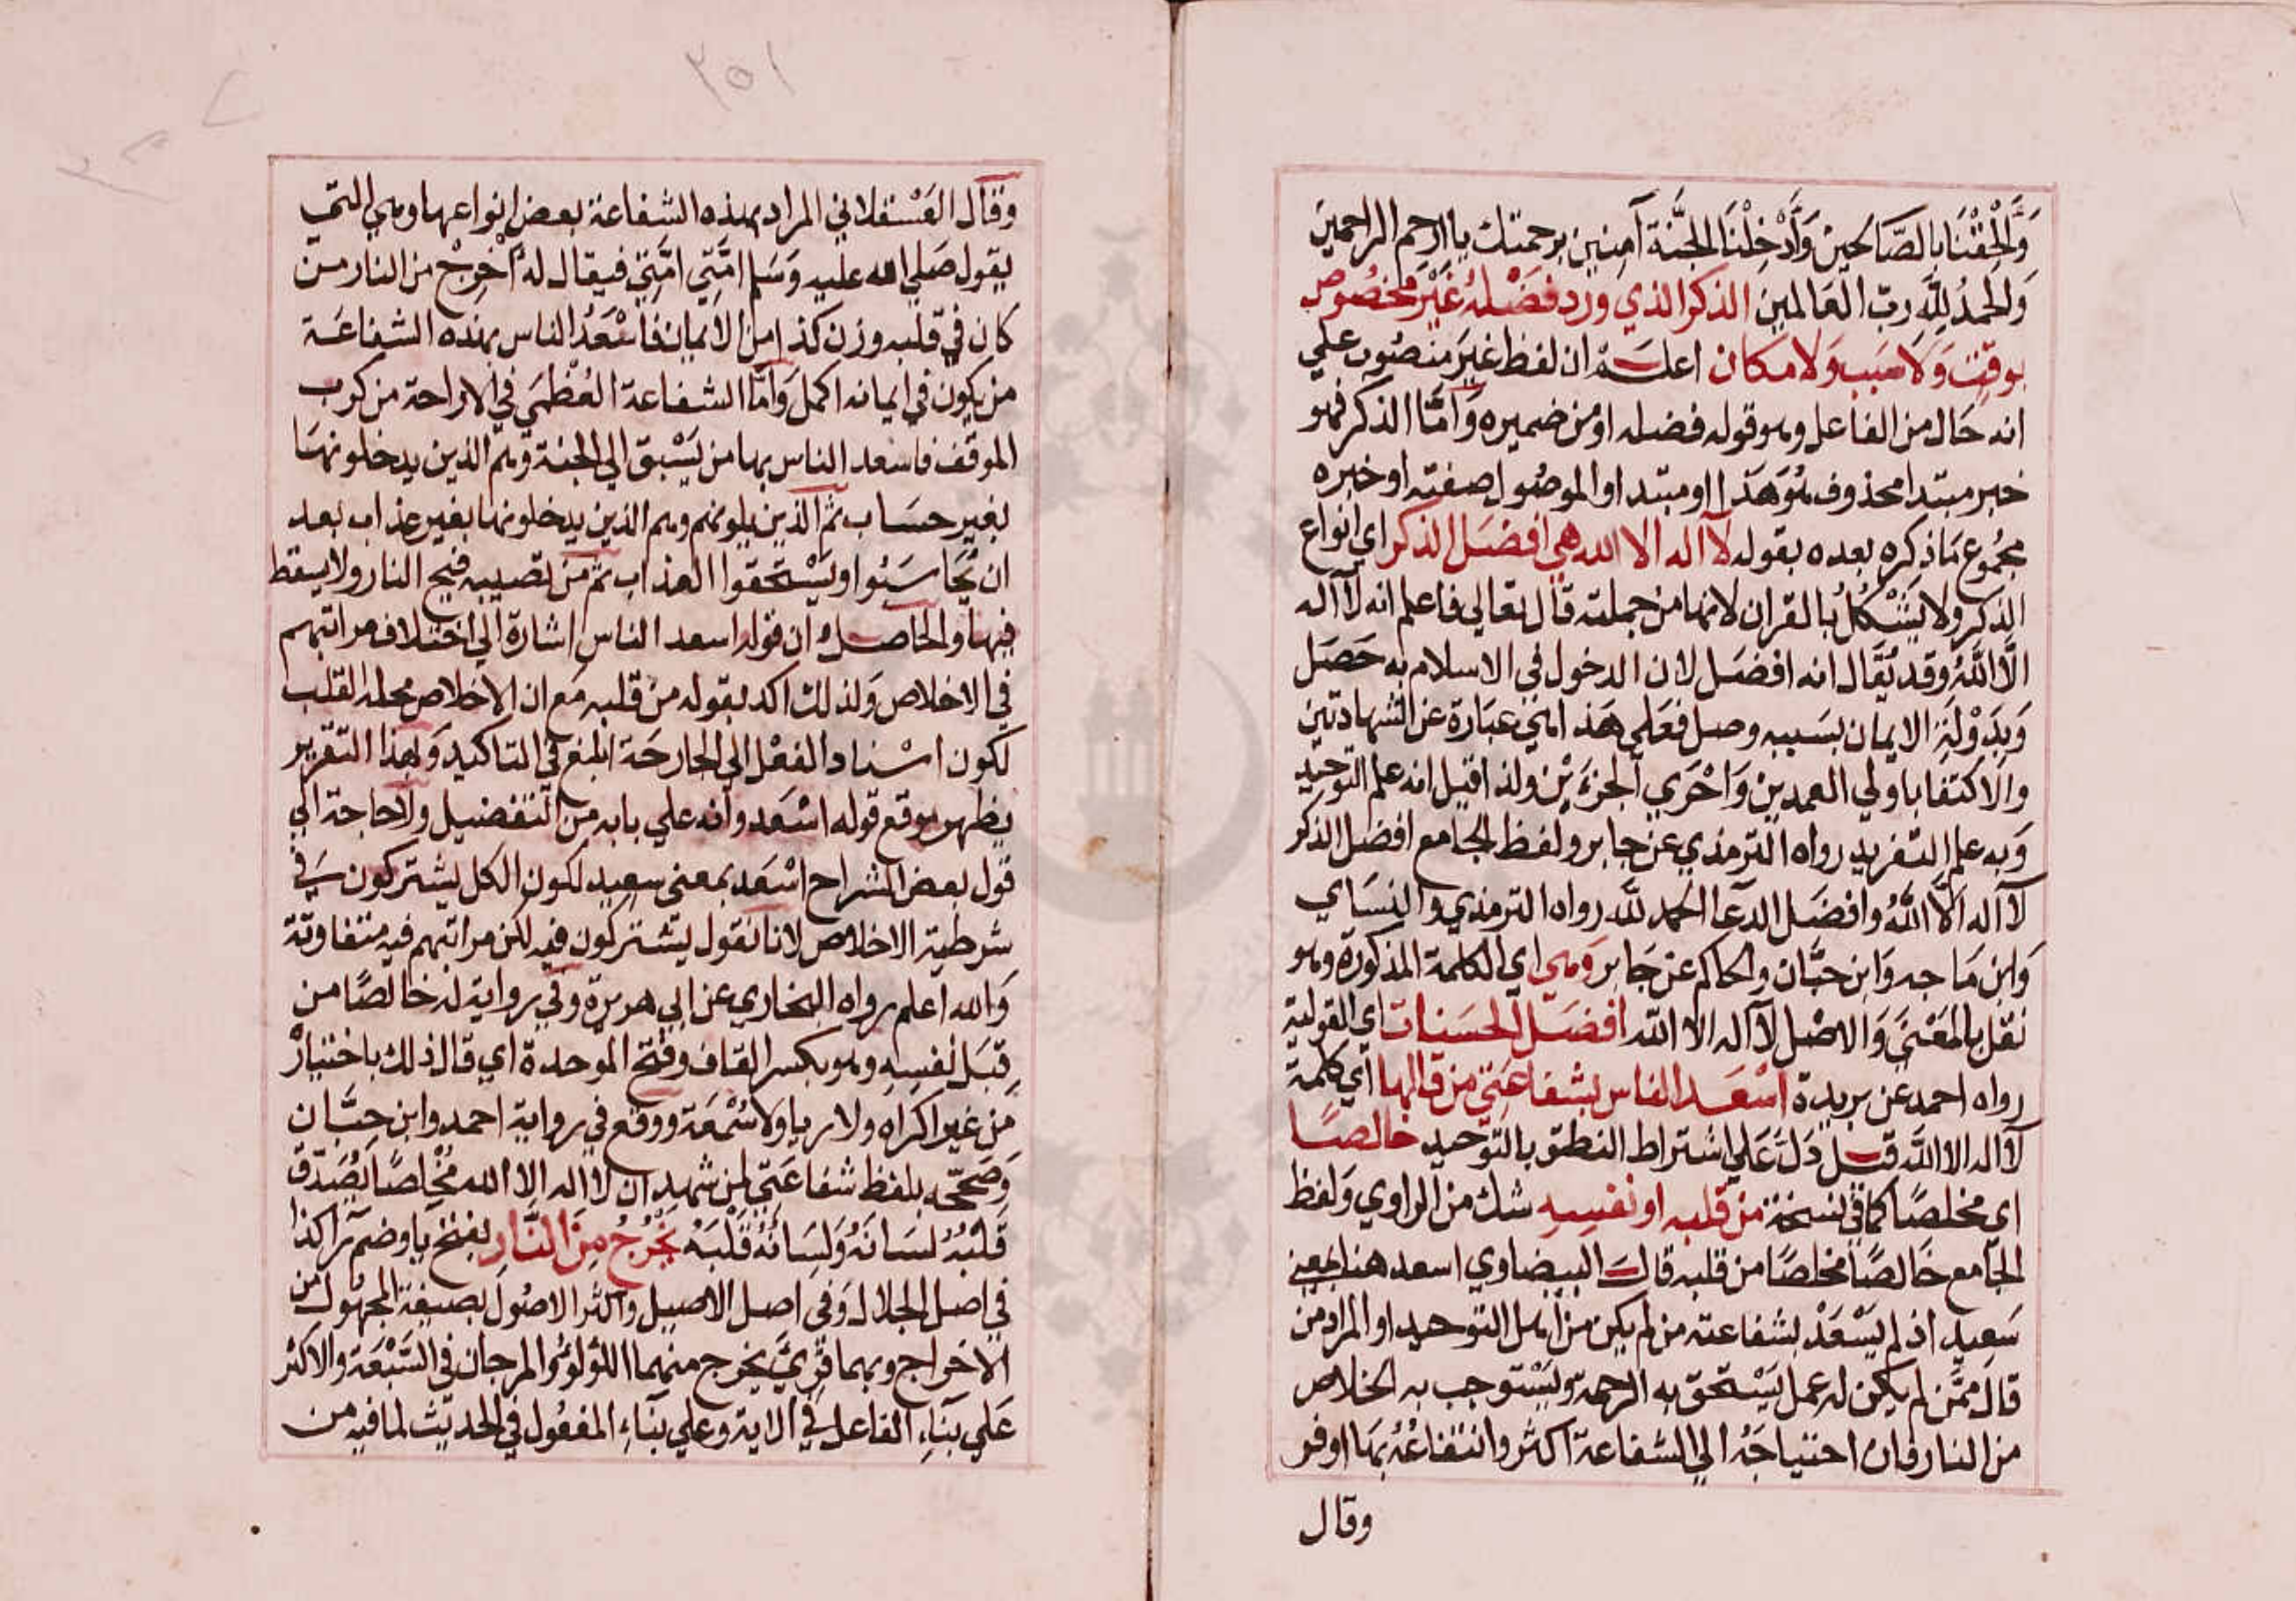 وَأَلْحِقْنَا بِالصَّالِحِينَ وَأَدْخِلْنَا الجَنَّة آمِنِين برحمتك يا ارحم الراحمين
وَالحمدُ لِلَّهِ ربّ العَالمين الذكر الذي وَرَد فَضْلُهُ غَيْرَ مخصُوص
بوقت وَلَا سَبب وَلا مكان اعلم ان لفظ غيرَ منصُوب علي
انه حَال من الفاعل وهو قوله فضله او من ضميره وَأمَّا الذكر فهو
خبر مبتدا محذوف هُوَ هَذا او مبتدا والموصُول صفته او خبره
مجمُوع مَا ذكره بعده بقوله لآ اله الا الله هي افضَل الذكر اي انواع
الذكر ولا يُشْكلُ بالقران لانها من جملته قال تعالي فاعلم انه لآ اله
الَّا اللَّهُ وقد يُقال انه افضَل لان الدخول في الاسلام به حَصَل
وَبِدَوْلَة الايمان بسَببه وصل فعَلي هَذا هي عبَارة عن الشهادتين
والاكتفا باولي العمدين وَاحْرَي الجزءَيْن ولذا قيل انه علم التوحيد
وَبه علم التفريد رواه الترمذي عن جابر ولفظ الجامع افضل الذكر
لآ اله الَّا اللَّهُ وافضَل الدعَا الحمد للَّه رواه الترمذي والنسَاي
وَابن مَاجه وَابن حبَّان والحاكم عن جَابر وَهي اي الكلمة المذكورَة وهو
نقل بالمَعْنَي وَالاصْل لآ اله الا الله افضَل الحسَنات اي القولية
رواه احمد عن بريدة اسْعَد الناس بشفاعَتِي من قالها اي كلمة
لآ اله الا اللَّه قيل دَلَّ عَلي اشتراط النطق بالتوحيد خالصًا
اي مخلصًا كما في نسخة من قلبه او نفسِه شك من الراوي وَلفظ
الجامع خَالصًا مخلصًا من قلبه قال البيضاوي اسعد هنا بمعني
سَعِيد اذ لم يَسْعَدْ بشفاعته من لم يكن من اهل التوحيد او المراد من
قال ممَّن لم يكن له عمل يَسْتحق به الرحمة ويَسْتوجب به الخلاص
من النار فان احتياجَهُ الي الشفاعة اكثر وانتفاعُهُ بهَا اوفر
وقال
٢٥١
وقال العَسْقلاني المراد بهذه الشفاعة بعض انواعها وهي التي
يقول صَلي الله عليه وَسَلم امَّتِي امَّتِي فيقال له أَخرِجْ من النار من
كان في قلبه وزن كذا من الايمان فاسْعَدُ الناس بهذه الشفاعَة
من يكون في ايمانه اكمل وَأمَّا الشفاعة العُظْمَي في الاراحة من كرب
الموقف فاسعد الناس بها من يَسْبق الي الجنة وهم الذين يدخلونهَا
بغير حسَاب ثم الذين يلونهم وهم الذين يدخلونها بغير عذاب بعد
ان يُحَاسَبُوا ويَسْتَحقوا العذاب ثم من تصيبه فيح النار ولا يسقط
فيها والحاصل ان قوله اسعد الناس اشارة الي اختلاف مراتبهم
في الاخلاص وَلذلك اكد بقوله من قلبه مَع ان الاخلاص محله القلب
لكون اسْناد الفعْل الي الجارحَة ابلغ في التاكيد وَبهذا التقرير
يظهر موقع قوله اسْعَد وانه علي بابه من التفضيل ولا حاجة الي
قول بعض الشراح اسْعَد بمعني سعِيد لكون الكل يشتركون في
شرطية الاخلاص لانا نقول يشتركون فيه لكن مراتبهم فيه متفاوتة
وَالله اعلم رواه البخاري عن ابي هريرة وفي رواية له خالصًا من
قِبَل نفسِه وهو بكسر القاف وفتح الموحدة اي قال ذلك باختيار
من غير اكراه ولا ريا ولا سُمْعَة ووقع في رواية احمد وابن حِبَّان
وَصَححّه بلفظ شفاعَتِي لمن شهد ان لا اله الا الله مخْلصًا يُصَدّق
قَلْبُهُ لسَانَهُ وَلسَانُهُ قَلْبَهُ يَخْرُجُ مِنَ النَّارِ بفتح يا وضم را كذا
في اصل الجلال وَفي اصل الاصيل واكثر الاصُول بصيغة المجهُول من
الاخراج وبهما قُريَ يخرج منهما اللؤلؤ والمرجان في السَّبْعَة والاكثر
عَلي بنَاءِ الفاعل في الاية وعلي بنَاءِ المفعُول في الحديث لما فيه من